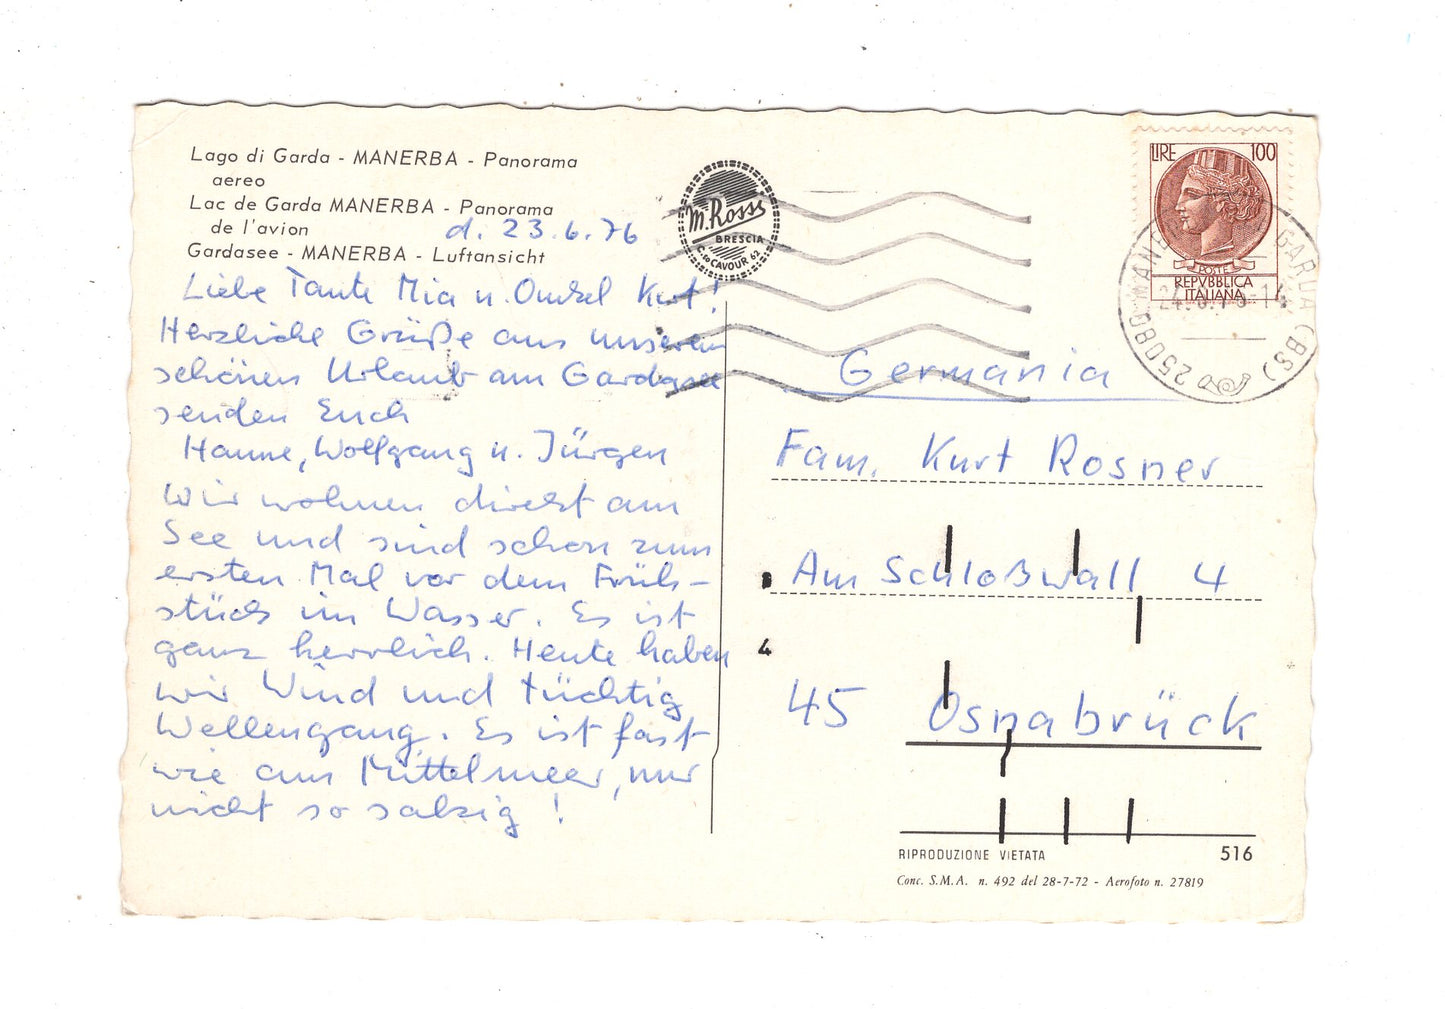 Lago di Garda - MANERBA - Panorama
aereo
Lac de Garda MANERBA - Panorama
de l'avion
Gardasee - MANERBA - Luftansicht
d. 23.6.76
Liebe Tante Mia u. Onkel Kurt!
Herzliche Grüße aus unserem
schönen Urlaub am Gardasee
senden Euch
Hanne, Wolfgang u. Jürgen
Wir wohnen direkt am
See und sind schon zum
ersten Mal vor dem Früh-
stück im Wasser. Es ist
ganz herrlich. Heute haben
wir Wind und tüchtig
Wellengang. Es ist fast
wie am Mittelmeer, nur
nicht so salzig!
M. Rossi
BRESCIA
C.so CAVOUR 62
LIRE 100
POSTE
REPVBBLICA
ITALIANA
25080 MANERBA GARDA (BS)
Germania
Fam. Kurt Rosner
Am Schloßwall 4
4
45 Osnabrück
RIPRODUZIONE VIETATA 516
Conc. S.M.A. n. 492 del 28-7-72 - Aerofoto n. 27819